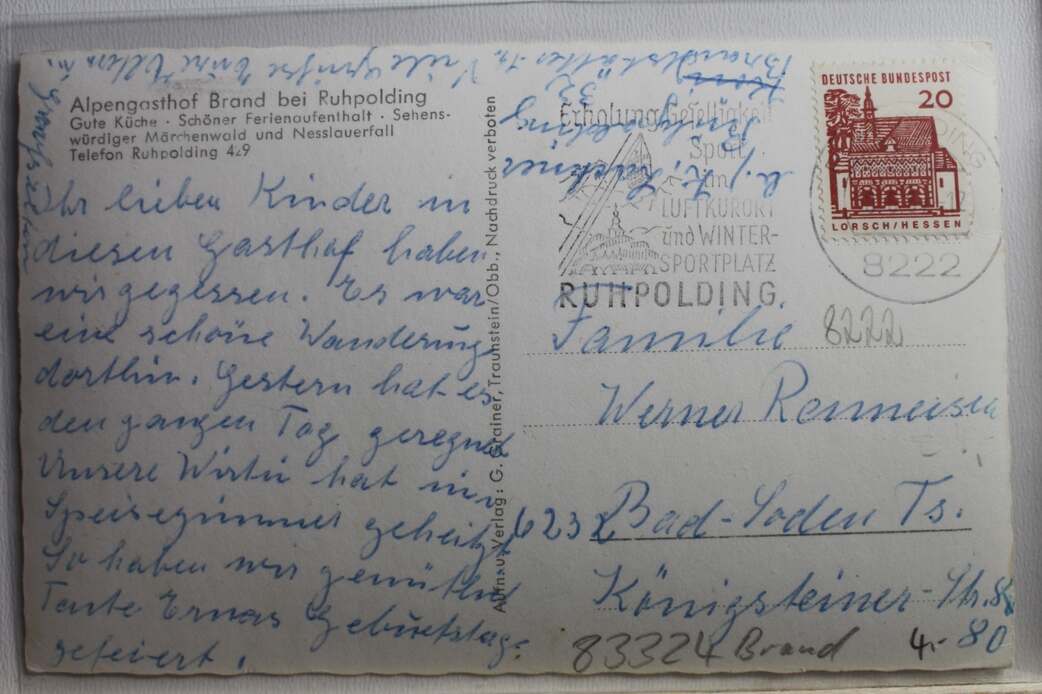 Alpengasthof Brand bei Ruhpolding
Gute Küche · Schöner Ferienaufenthalt · Sehens-
würdiger Märchenwald und Nesslauerfall
Telefon Ruhpolding 429
Ihr lieben Kinder in
diesen Gasthof haben
wir gegessen. Es war
eine schöne Wanderung
dorthin. Gestern hat es
den ganzen Tag geregnet
Unsere Wirtin hat im
Speisezimmer geheizt
So haben wir gemütlich
Tante Ernas Geburtstag
gefeiert.
Viele Grüße Eure Eltern u.
Aufn. u. Verlag: G. Grainer, Traunstein/Obb., Nachdruck verboten
Ruhpolding
32
Erholung Geselligkeit
Sport
im
LUFTKURORT
und WINTER-
SPORTPLATZ
RUHPOLDING
DEUTSCHE BUNDESPOST
20
LORSCH/HESSEN
8222
8222
Familie
Werner
6232 Bad-Soden Ts.
Königsteiner-Str. 88
80
83324 Brand 4,-